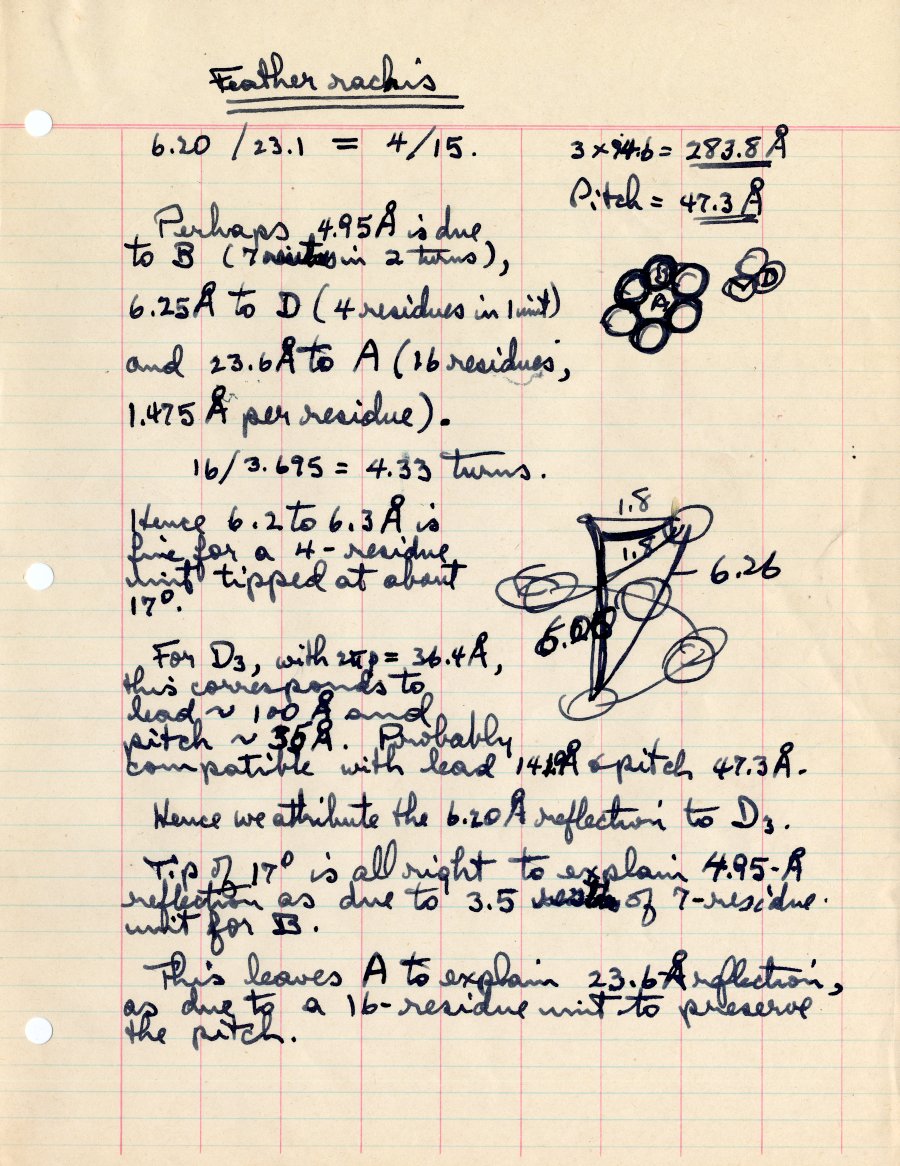 Feather rachis
6.20 / 23.1 = 4/15.
3 x 94.6 = 283.8 Å
Pitch = 47.3 Å
Perhaps 4.95 Å is due
to B (7 residues in 2 turns),
6.25 Å to D (4 residues in 1 unit)
and 23.6 Å to A (16 residues,
1.475 Å per residue).
16/3.695 = 4.33 turns.
B
A
D
Hence 6.2 to 6.3 Å is
fine for a 4-residue
unit tipped at about
17°.
1.8
1.8
6.26
For D3, with 2πρ = 36.4 Å,
this corresponds to
lead ~ 100 Å and
pitch ~ 35 Å. Probably
compatible with lead Å & pitch 47.3 Å.
Hence we attribute the 6.20 Å reflection to D3.
Tip of 17° is all right to explain 4.95-Å
reflection as due to 3.5 of 7-residue
unit for B.
This leaves A to explain 23.6-Å reflection,
as due to a 16-residue unit to preserve
the pitch.